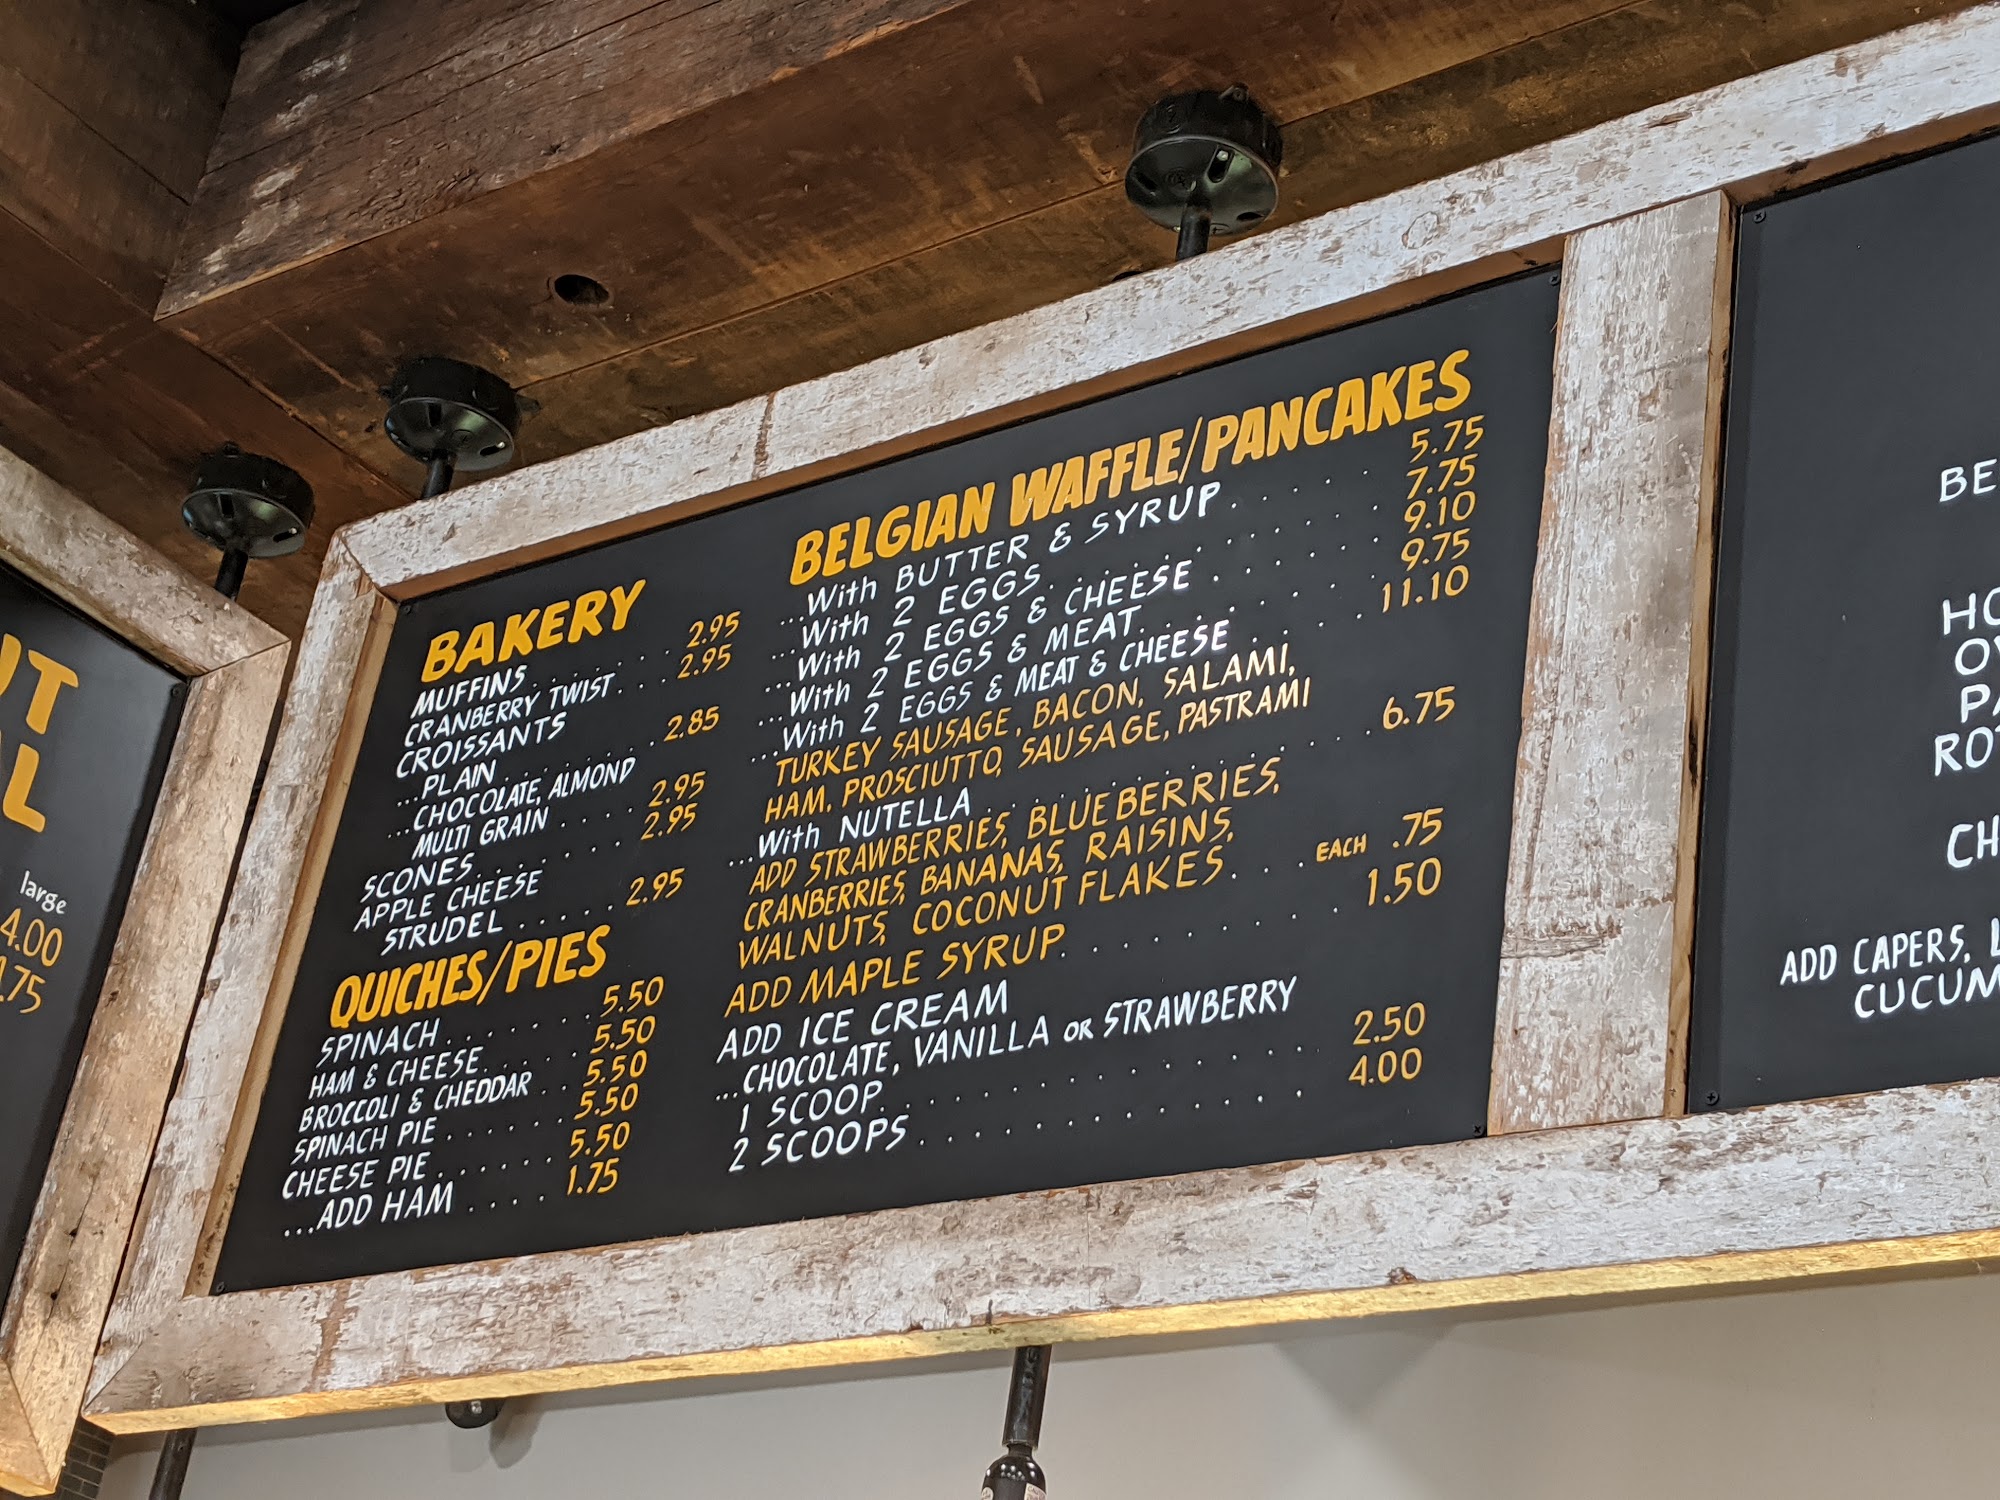 UT
AL
large
4.00
.75
BAKERY
MUFFINS . . . . . . 2.95
CRANBERRY TWIST . . . 2.95
CROISSANTS
...PLAIN . . . . . . . 2.85
...CHOCOLATE, ALMOND
MULTI GRAIN . . . . 2.95
SCONES . . . . . . . 2.95
APPLE CHEESE
STRUDEL . . . . . 2.95
QUICHES/PIES
SPINACH . . . . . . 5.50
HAM & CHEESE . . . . 5.50
BROCCOLI & CHEDDAR . . 5.50
SPINACH PIE . . . . . 5.50
CHEESE PIE . . . . . . 5.50
...ADD HAM . . . . 1.75
BELGIAN WAFFLE/PANCAKES
...With BUTTER & SYRUP . . . . . 5.75
...With 2 EGGS . . . . . . . . . 7.75
...With 2 EGGS & CHEESE . . . . . . 9.10
...With 2 EGGS & MEAT . . . . . . 9.75
...With 2 EGGS & MEAT & CHEESE . . . . 11.10
TURKEY SAUSAGE, BACON, SALAMI,
HAM, PROSCIUTTO, SAUSAGE, PASTRAMI
...With NUTELLA . . . . . . . . . . 6.75
ADD STRAWBERRIES, BLUEBERRIES,
CRANBERRIES, BANANAS, RAISINS,
WALNUTS, COCONUT FLAKES . . . EACH .75
ADD MAPLE SYRUP . . . . . . . . 1.50
ADD ICE CREAM
...CHOCOLATE, VANILLA OR STRAWBERRY
1 SCOOP . . . . . . . . . . . . 2.50
2 SCOOPS . . . . . . . . . . . 4.00
BE
HO
PA
CH
ADD CAPERS,
CUCUM